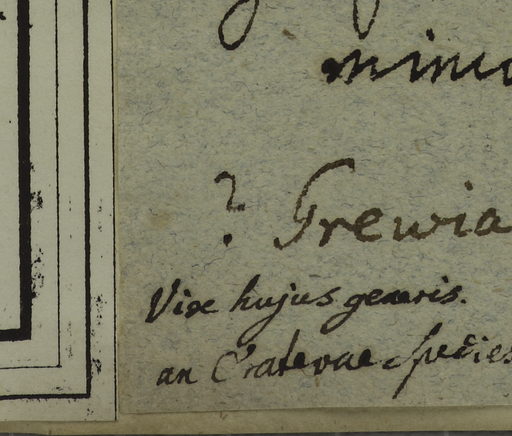 ? Grewia
Vix hujus generis.
an Cratevae Species